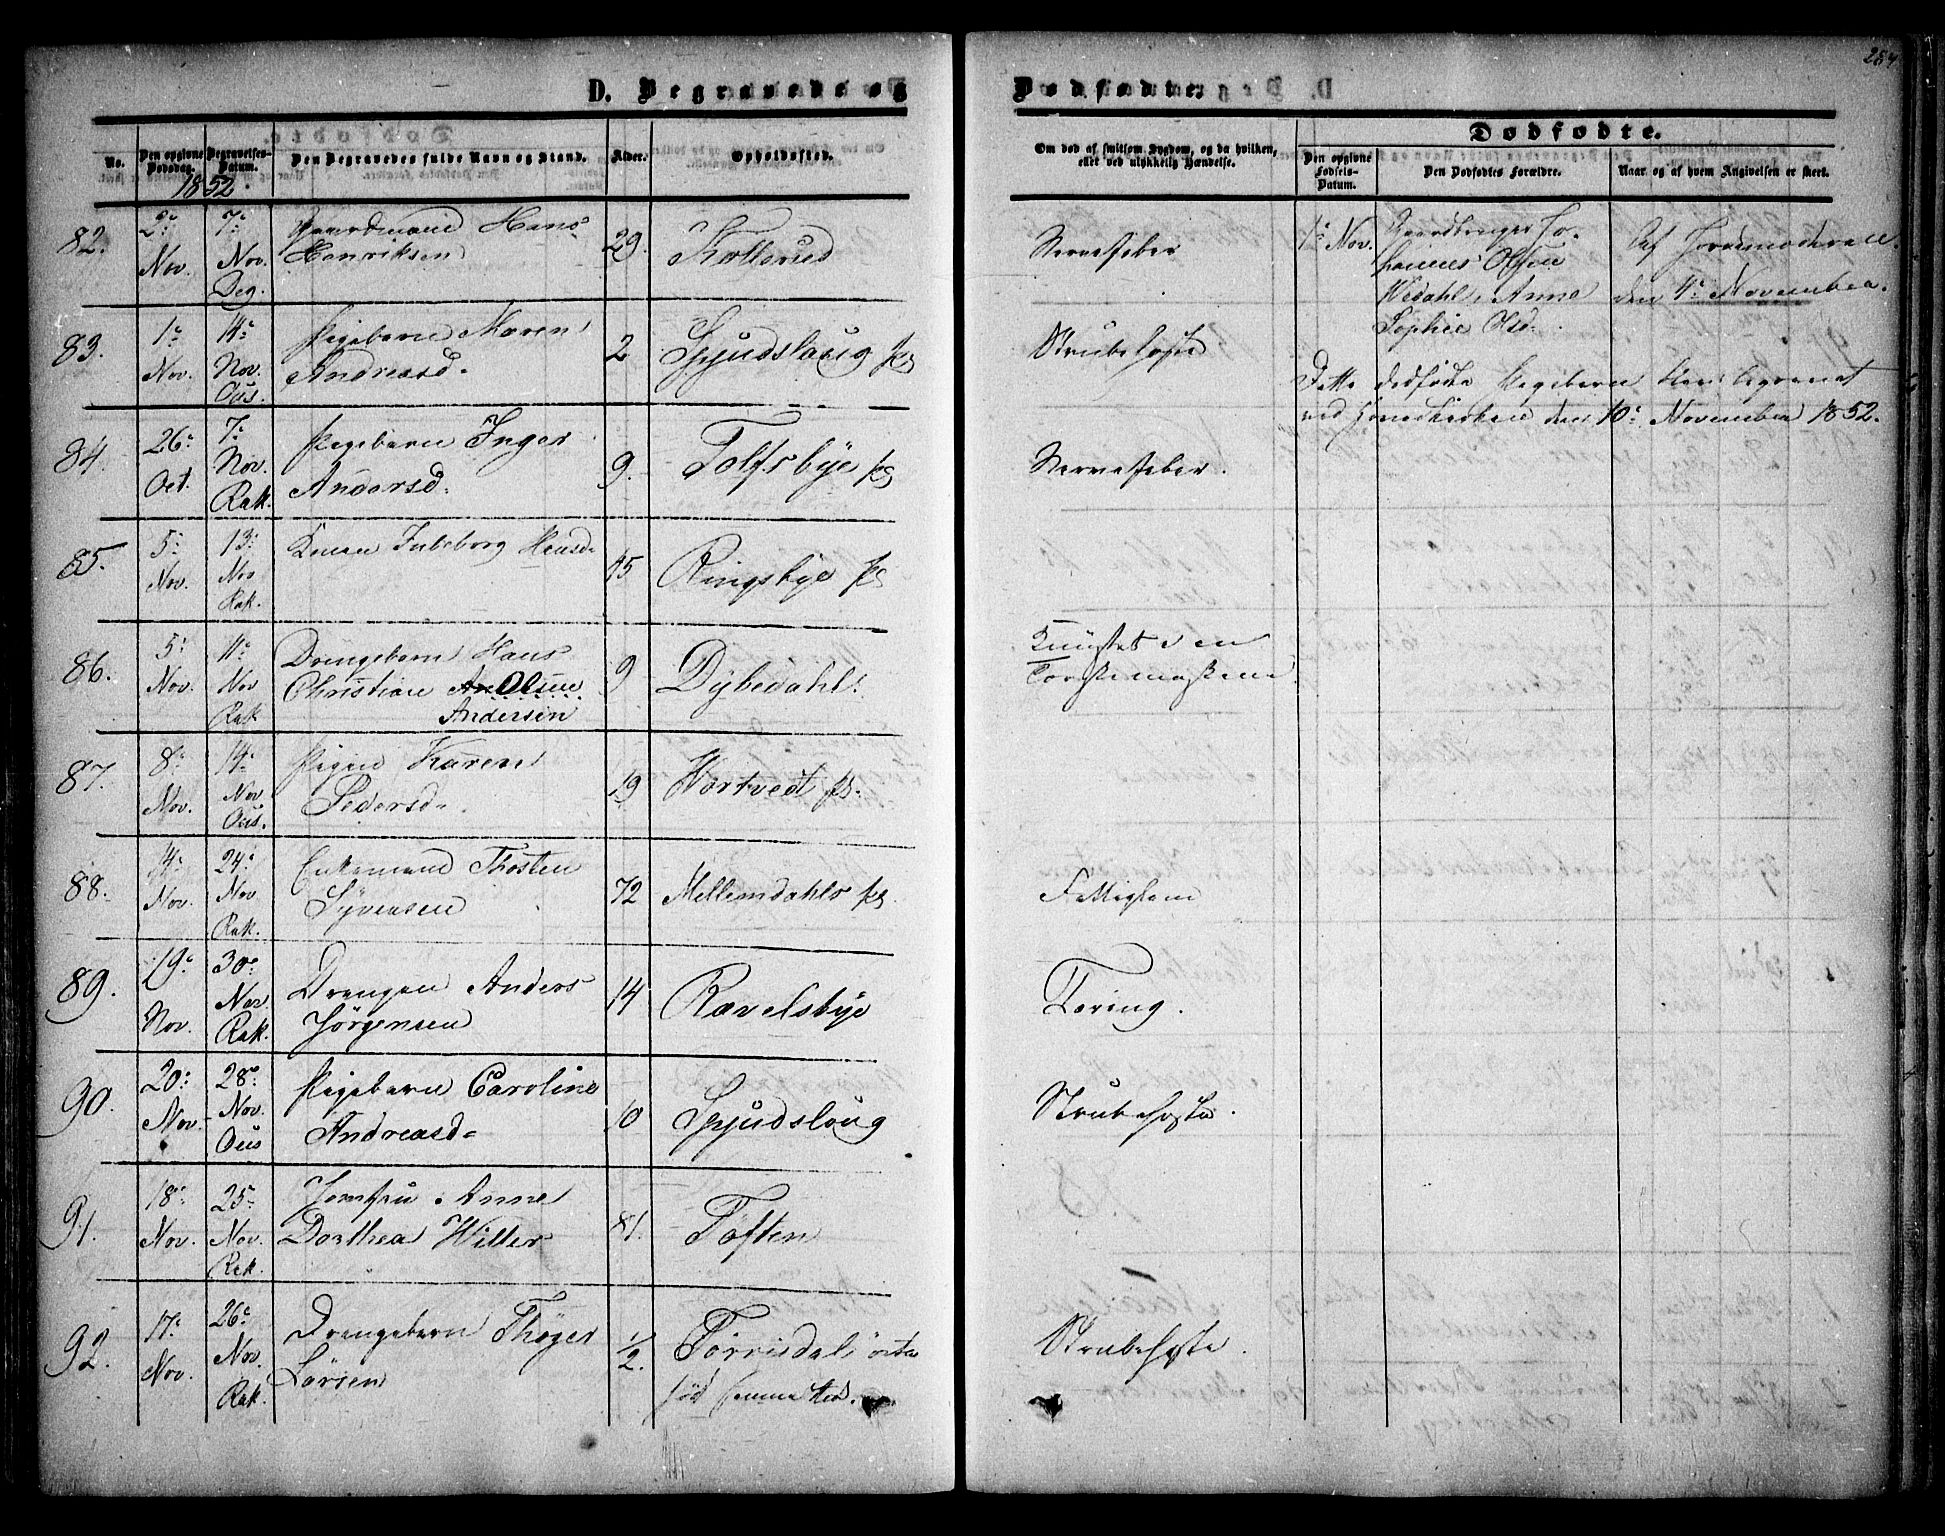 284
D. Begravede og
Dødfødte.
No.
Den opgivne Dødsdag.
Begravelses-Datum.
Den Begravedes fulde Navn og Stand.
Alder.
Opholdssted.
Om død af smitsom Sygdom, og da hvilken,
eller ved ulykkelig Hændelse.
Dødfødte.
Den opgivne Fødsels-Datum.
Den Dødfødtes Forældre.
Naar og af hvem Angivelsen er skeet.
1852.
82. 2 Nov. 7 Nov. Deg. Gaardmand Hans
Henriksen 29. Kollerud Nervefeber
1 Nov. Gaardbruger Jo-
hannes Olsen
Wedahl, Anne
Sophie Olsd.
Af Jordemoderen
den 4 November.
83. 1 Nov. 14 Nov. Ous. Pigebarn Maren
Andreasd. 2 Gjudslaug ps Strubehoste
Dette dødfødte Pigebarn blev begravet
ved Hovedkirken den 10 November 1852.
84. 26 Oct. 7 Nov. Rak. Pigebarn Inger
Andersd. 9. Tolfsbye ps Nervefeber.
85. 5 Nov. 13 Nov Rak. Konen Ingeborg Hansd. 45 Ringsbye ps
86. 5 Nov. 11 Nov Rak Drengebarn Hans
Christian An Olsen
Andersen 9 Dybedahl. Knuset i en
Torskemaskine
87. 8 Nov. 14 Nov Ous. Pigen Karen
Pedersd. 19 Hortvedt ps.
88. 14 Nov. 24 Nov Rak. Enkemand Thosten
Syversen 72 Mellemdahls ps. Fattiglem
89. 19 Nov. 30 Nov. Rak. Drengen Anders
Jörgensen 14 Ravelsbye Tæring.
90. 20 Nov. 28 Nov. Ous Pigebarn Caroline
Andreasd. 10 Gjudslaug Strubehoste.
91. 18 Nov. 25 Nov. Rak. Jomfru Anne
Dorthea Willer 81. Toften
92. 17 Nov. 26 Nov. Rak. Drengebarn Thöger
Larsen 1/2. Torrisdal
født Strubehoste.